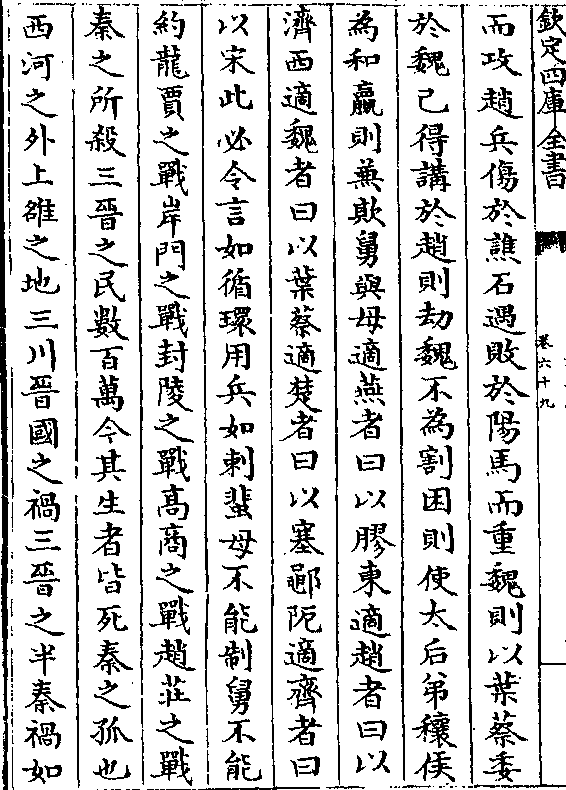 欽定四庫全書
卷六十九
而攻趙兵傷於譙石遇敗於陽馬而重魏則以葉蔡委
於魏已得講於趙則劫魏不為割困則使太后弟穰侯
為和嬴則兼欺舅與母適燕者曰以膠東適趙者曰以
濟西適魏者曰以葉蔡適楚者曰以塞鄳阨適齊者曰
以宋此必令言如循環用兵如刺蜚母不能制舅不能
約龍賈之戰岸門之戰封陵之戰髙商之戰趙莊之戰
秦之所殺三晉之民數百萬今其生者皆死秦之孤也
西河之外上雒之地三川晉國之禍三晉之半秦禍如